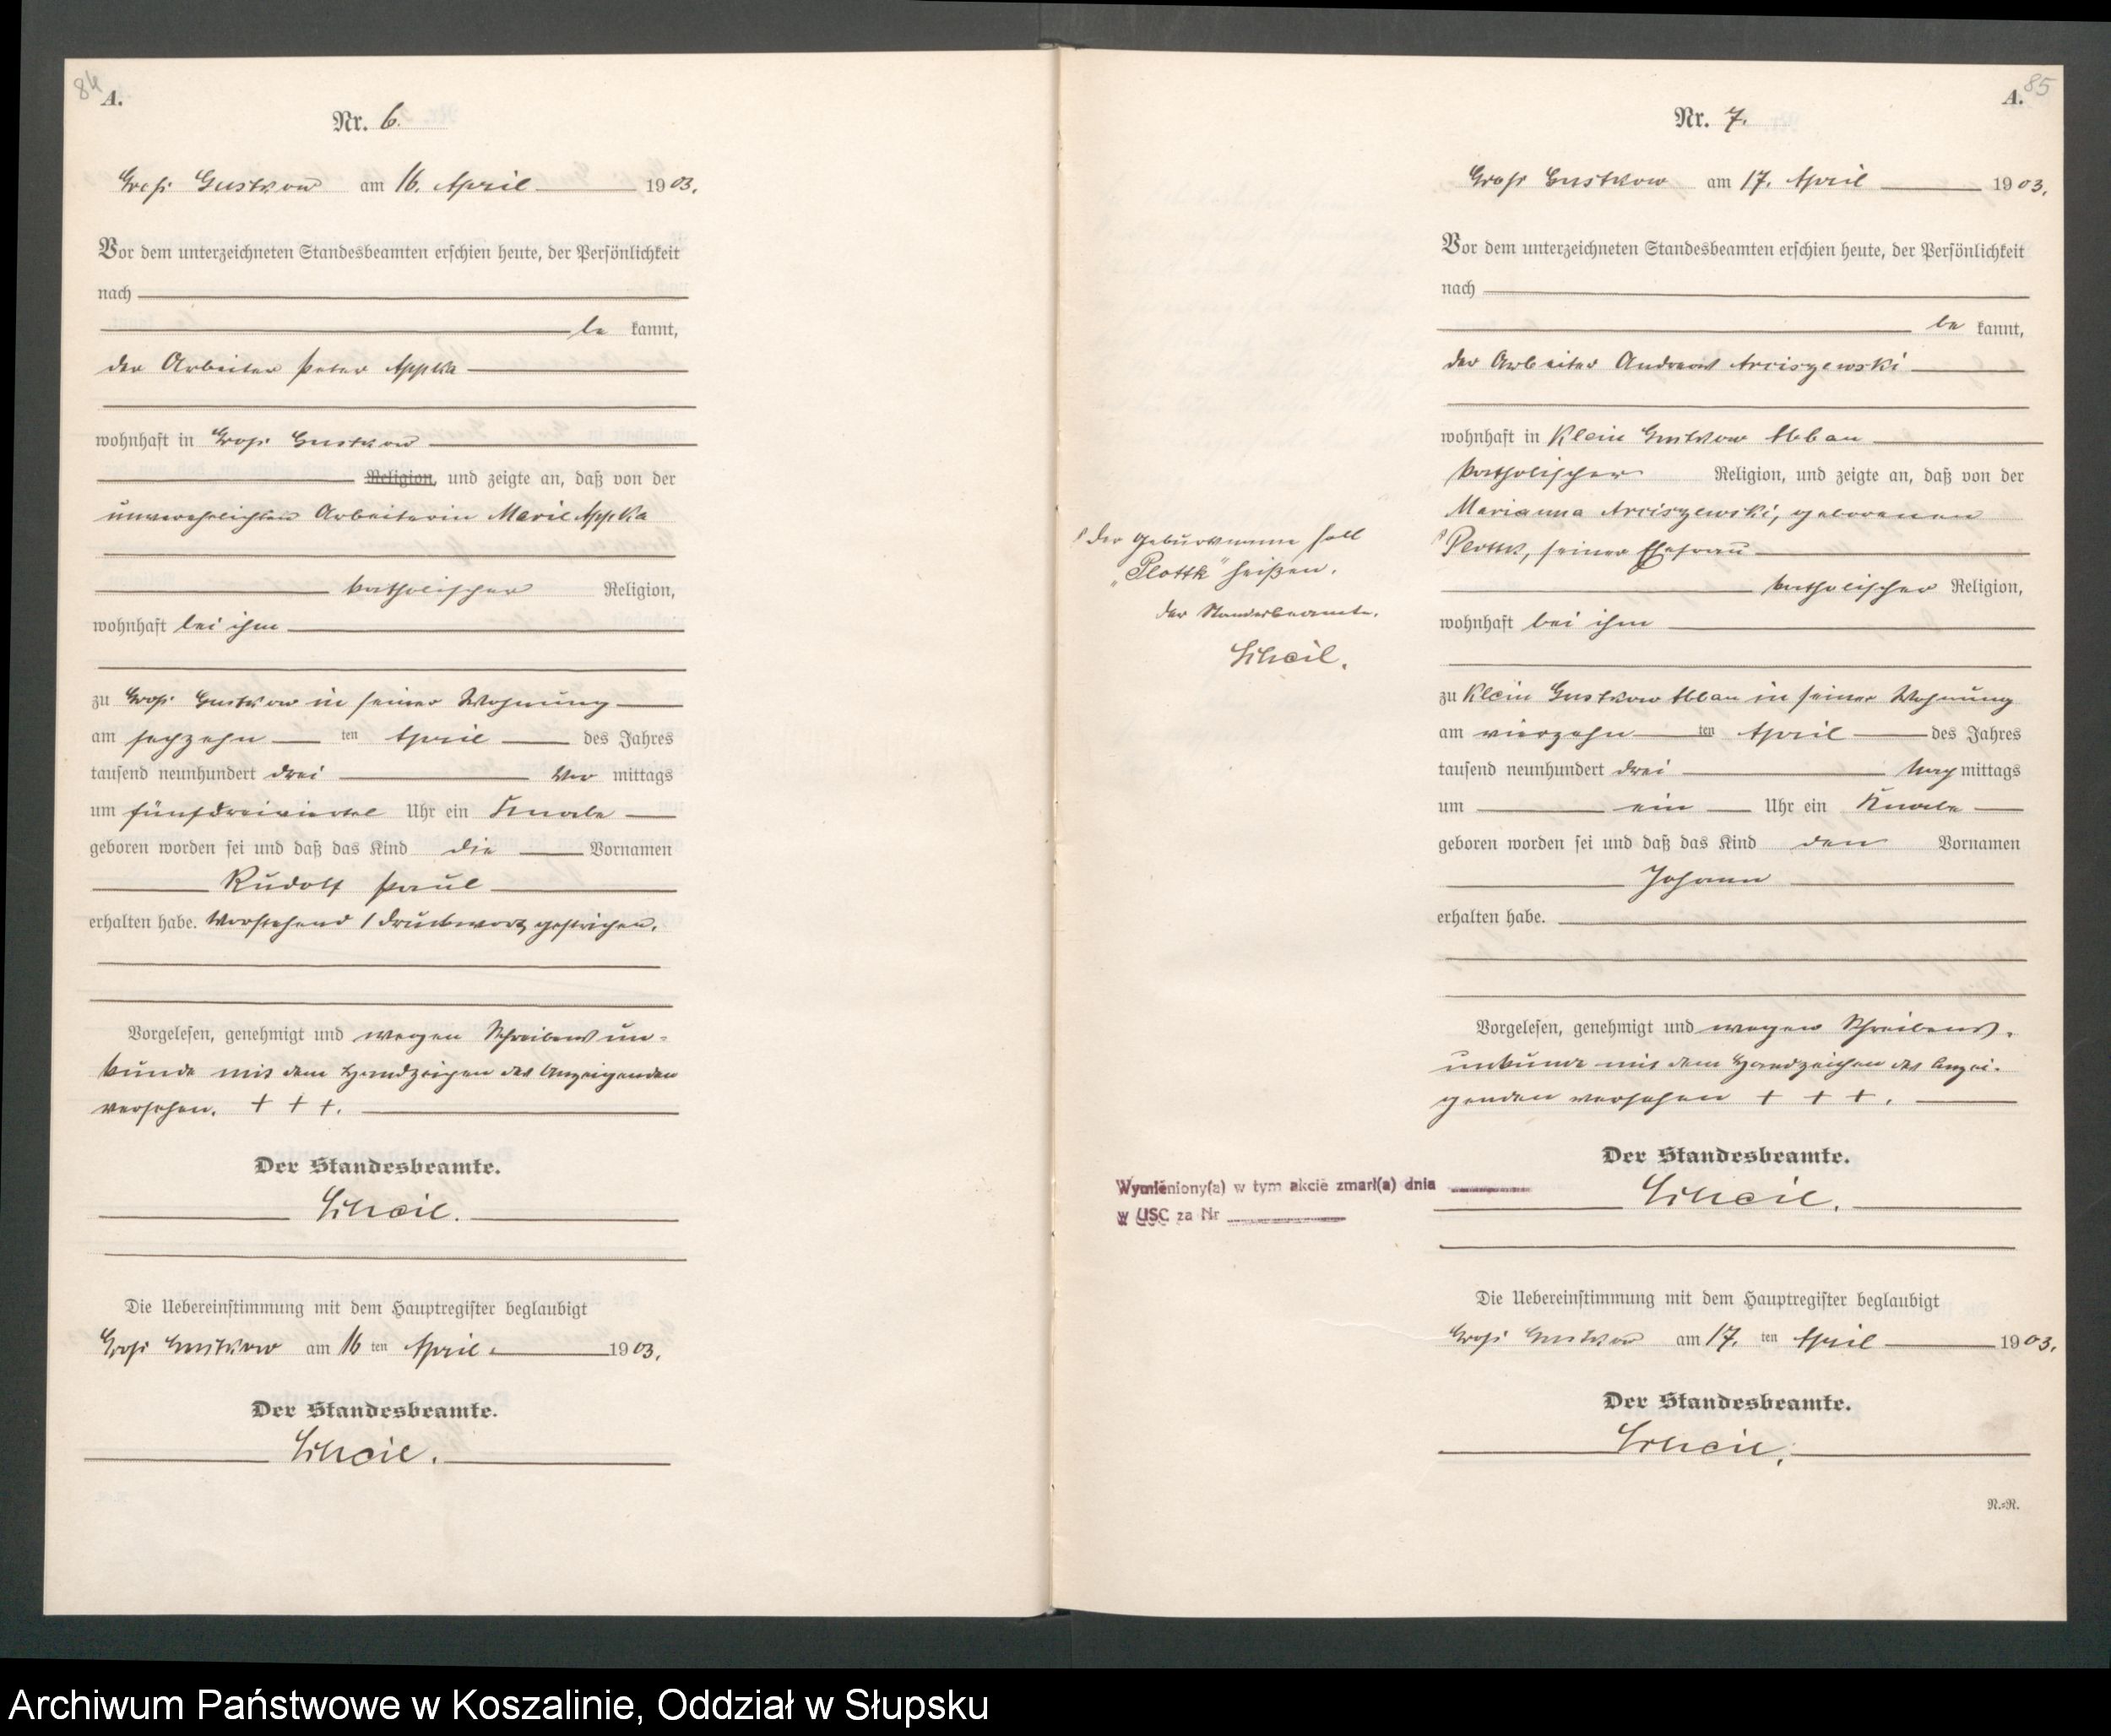 84
A.
Nr. 6.
Groß Gustkow am 16. April 1903.
Vor dem unterzeichneten Standesbeamten erschien heute, der Persönlichkeit
nach
be kannt,
der Arbeiter Peter Appka
wohnhaft in Groß Gustkow
Religion, und zeigte an, daß von der
unverehelichten Arbeiterin Marie Appka
katholischer Religion,
wohnhaft bei ihm
zu Groß Gustkow in seiner Wohnung
am sechzehn ten April des Jahres
tausend neunhundert drei Vor mittags
um fünfdreiviertel Uhr ein Knabe
geboren worden sei und daß das Kind die Vornamen
Rudolf Paul
erhalten habe. Vorstehend 1 Druckwort gestrichen.
Vorgelesen, genehmigt und wegen Schreibens un-
kunde mit dem Handzeichen des Anzeigenden
versehen. + + +.
Der Standesbeamte.
Die Uebereinstimmung mit dem Hauptregister beglaubigt
Groß Gustkow am 16 ten April 1903.
Der Standesbeamte.
85
A.
Nr. 7.
Groß Gustkow am 17. April 1903.
Vor dem unterzeichneten Standesbeamten erschien heute, der Persönlichkeit
nach
be kannt,
der Arbeiter Andreas Arciszewski
wohnhaft in Klein Gustkow Abbau
katholischer Religion, und zeigte an, daß von der
Marianna Arciszewski, geborenen
Plottk, seiner Ehefrau
katholischer Religion,
wohnhaft bei ihm
zu Klein Gustkow Abbau in seiner Wohnung
am vierzehn ten April des Jahres
tausend neunhundert drei Nach mittags
um ein Uhr ein Knabe
geboren worden sei und daß das Kind den Vornamen
Johann
erhalten habe.
Vorgelesen, genehmigt und wegen Schreibens-
unkunde mit dem Handzeichen des Anzei-
genden versehen + + +.
Der Standesbeamte.
Die Uebereinstimmung mit dem Hauptregister beglaubigt
Groß Gustkow am 17. ten April 1903.
Der Standesbeamte.
N.=R.
Der Geburtsname soll
"Plottk" heißen.
Der Standesbeamte.
Wymieniony(a) w tym akcie zmarł(a) dnia
w USC za Nr
Archiwum Państwowe w Koszalinie, Oddział w Słupsku